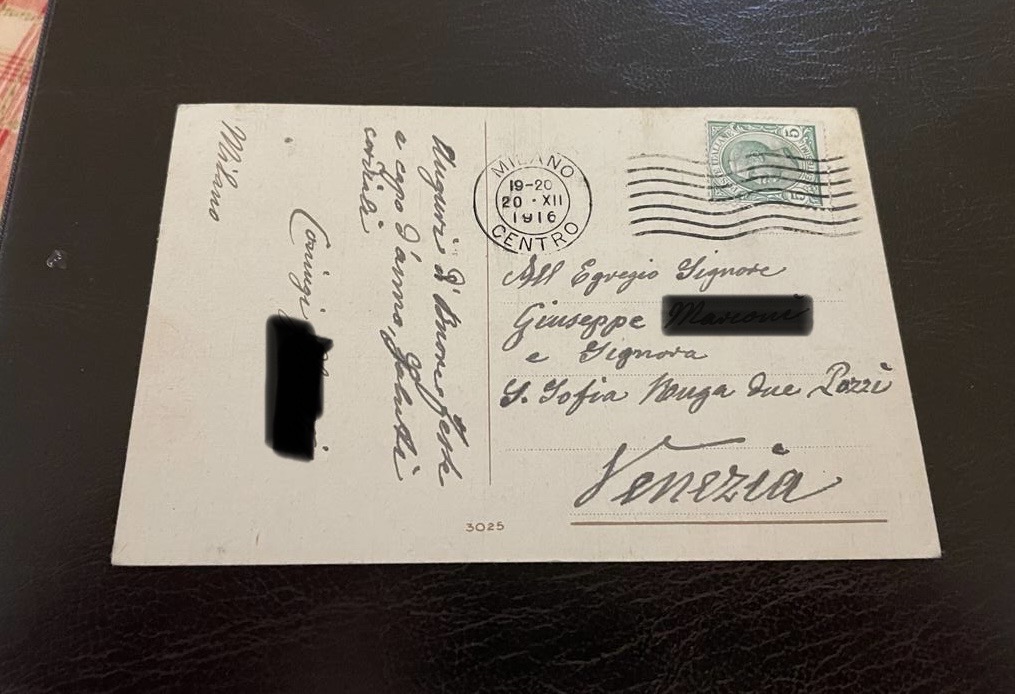 Milano
Auguri di buone feste
e capo d'anno, saluti
cordiali
Coniugi
MILANO
19-20
20 · XII
1916
CENTRO
All Egregio Signore
Giuseppe
e Signora
S. Sofia Ruga due Pozzi
Venezia
3025
5
5